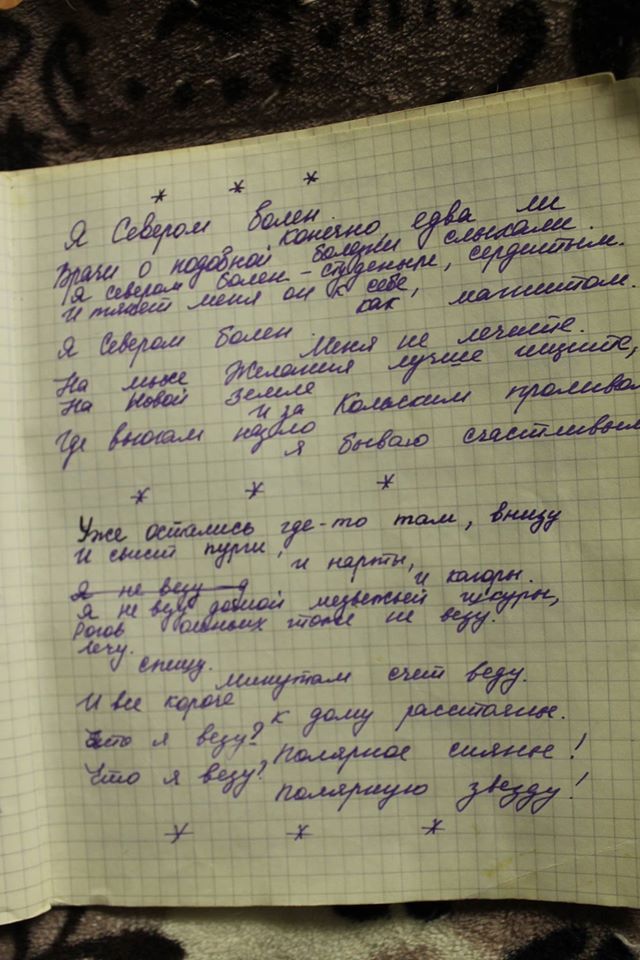 * * *
Я Севером болен.
Конечно, едва ли
Врачи о подобной болезни слыхали.
Я севером болен - студеным, сердитым.
И тянет меня он к себе,
как магнитом.
Я Севером болен.
Меня не лечите.
На мысе Желания лучше ищите,
На Новой Земле
И за Кольским проливом
Где вьюгам назло
я бываю счастливым
* * *
Уже остались где-то там, внизу
И свист пурги,
и нарты,
и каюры.
Я не везу д
Я не везу домой медвежьей шкуры,
Рогов оленьих тоже не везу.
Лечу.
Спешу.
Минутам счет веду.
И все короче
к дому расстоянье.
Что я везу?
Полярное сиянье!
Что я везу?
Полярную звезду!
* * *